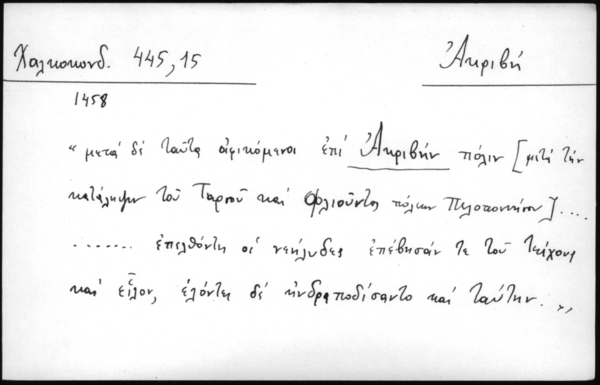 Χαλκοκονδ. 445,15
Ἀκριβή
1458
« μετά δέ ταῦτα ἀφικόμενοι ἐπί Ἀκριβήν πόλιν [μετά τήν
κατάληψιν τοῦ Ταρσοῦ καί Φλιοῦντος πόλεων Πελοποννήσου]....
....... ἐπελθόντες οἱ νεήλυδες ἐπέβησάν τε τοῦ τείχους
καί εἷλον, ἑλόντες δέ ἠνδραποδίσαντο καί ταύτην..»